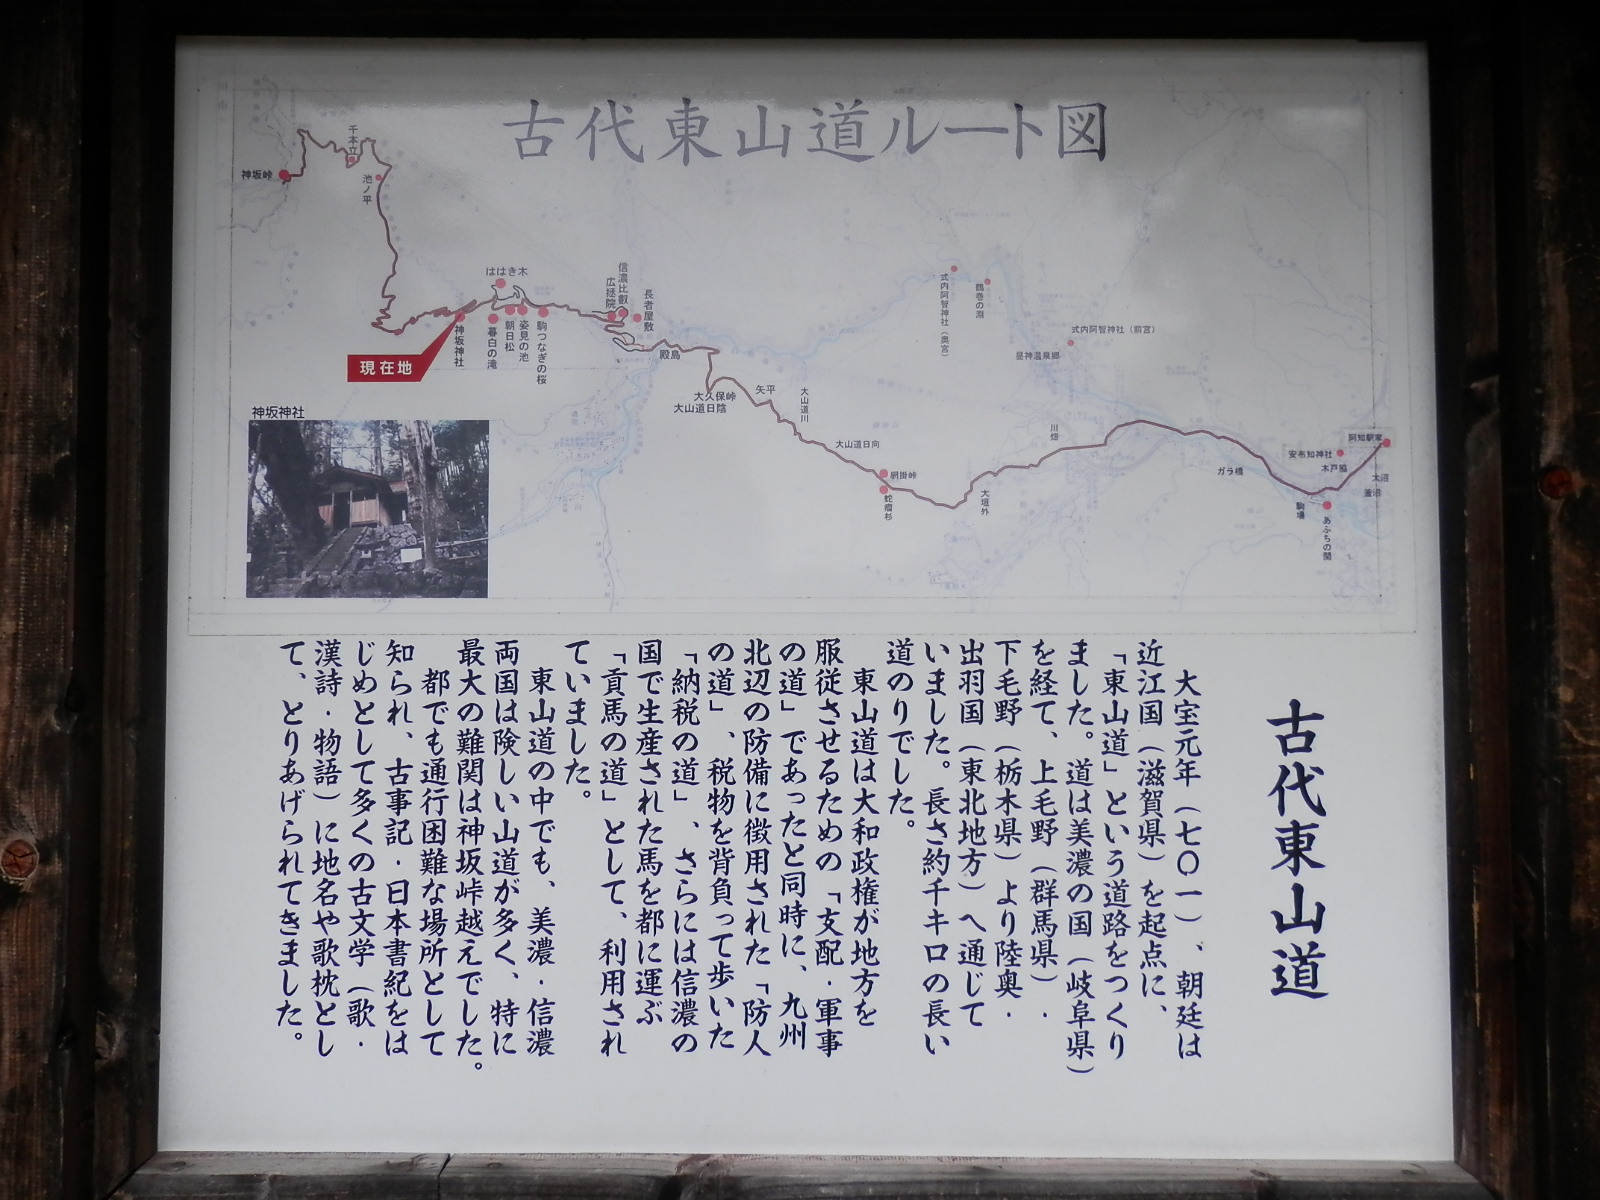 古代東山道ルート図
神坂峠
千本立
池ノ平
ははき木
神坂神社
暮白の滝
朝日松
姿見の池
駒つなぎの桜
広拯院
信濃比叡
長者屋敷
現在地
殿島
大久保峠
大山道日陰
矢平
大山道川
大山道日向
網掛峠
蛇瘤杉
大垣外
川畑
式内阿智神社(奥宮)
鶴巻の淵
式内阿智神社(前宮)
昼神温泉郷
ガラ橋
安布知神社
阿知駅家
木戸脇
大沼
駒場
あふちの関
神坂神社
古代東山道
大宝元年(七〇一)、朝廷は
近江国(滋賀県)を起点に、
「東山道」という道路をつくり
ました。道は美濃の国(岐阜県)
を経て、上毛野(群馬県)・
下毛野(栃木県)より陸奥・
出羽国(東北地方)へ通じて
いました。長さ約千キロの長い
道のりでした。
東山道は大和政権が地方を
服従させるための「支配・軍事
の道」であったと同時に、九州
北辺の防備に徴用された「防人
の道」、税物を背負って歩いた
「納税の道」、さらには信濃の
国で生産された馬を都に運ぶ
「貢馬の道」として、利用され
ていました。
東山道の中でも、美濃・信濃
両国は険しい山道が多く、特に
最大の難関は神坂峠越えでした。
都でも通行困難な場所として
知られ、古事記・日本書紀をは
じめとして多くの古文学(歌・
漢詩・物語)に地名や歌枕とし
て、とりあげられてきました。